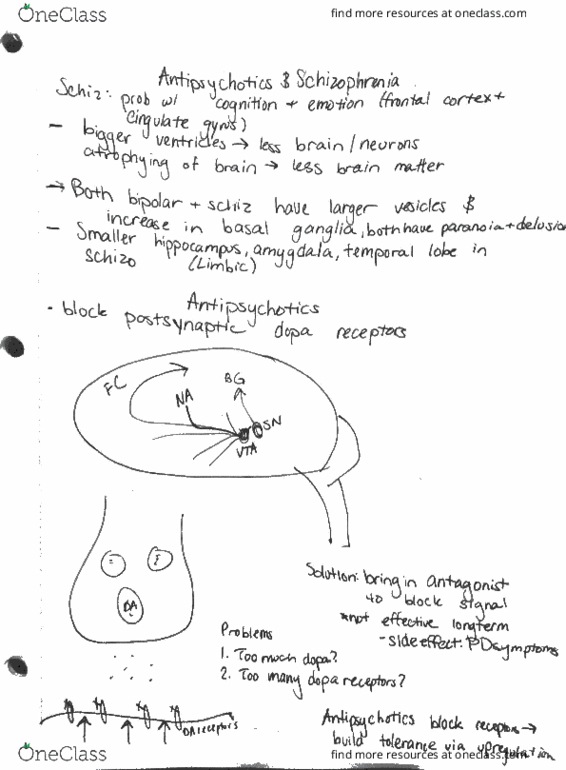 OneClass
find more resources at oneclass.com
Antipsychotics & Schizophrenia
Schiz: prob w/ cognition + emotion (frontal cortex +
cingulate gyrus)
- bigger ventricles → less brain/neurons
atrophying of brain → less brain matter
→ Both bipolar + schiz have larger vesicles &
increase in basal ganglia, both have paranoia + delusion
- Smaller hippocampus, amygdala, temporal lobe in
schizo (Limbic)
Antipsychotics
· block postsynaptic dopa receptors
FC
NA
BG
SN
VTA
DA
Solution: bring in antagonist
to block signal
*not effective longterm
- side effect: PD symptoms
Problems
1. Too much dopa?
2. Too many dopa receptors?
DA receptors
Antipsychotics block receptors →
build tolerance via upregulation
OneClass
find more resources at oneclass.com